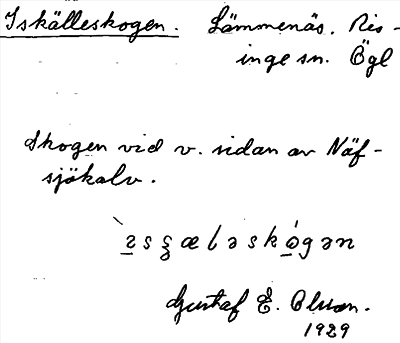 Iskälleskogen. Lämmenäs. Ris-
inge sn. Ögl
Skogen vid v. sidan av Näf-
sjökalv.
Gustaf E. Olsson.
1929